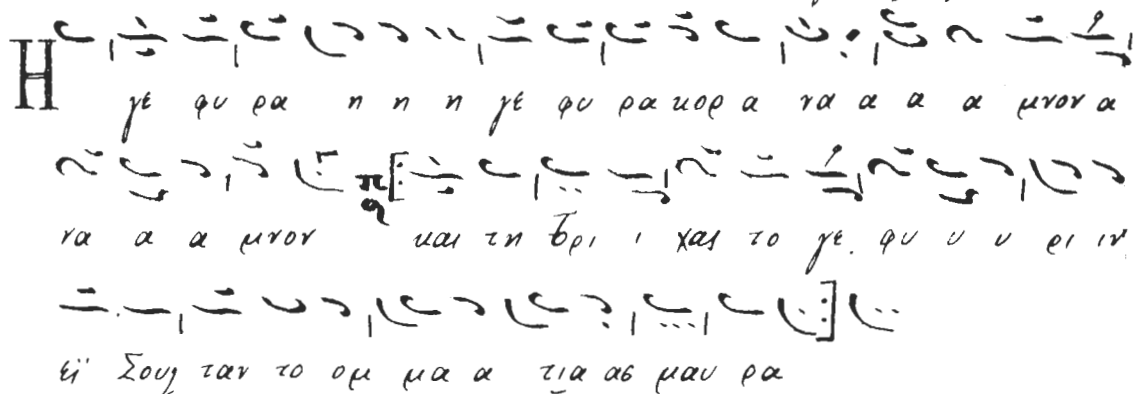 Η γε φυ ρα η η η γε φυ ρα κορ α να α α α μνον α
να α α μνον και τη Τρι ι χας το γε φυ υ υ ρι ιν
εϊ Σουλ ταν το ομ μα α τια ας μαυ ρα